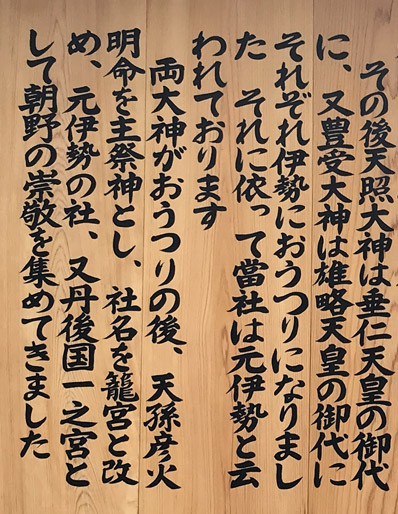 その後天照大神は垂仁天皇の御代
に、又豊受大神は雄略天皇の御代に
それぞれ伊勢におうつりになりまし
た　それに依って當社は元伊勢と云
われております
両大神がおうつりの後、天孫彦火
明命を主祭神とし、社名を籠宮と改
め、元伊勢の社、又丹後国一之宮と
して朝野の崇敬を集めてきました